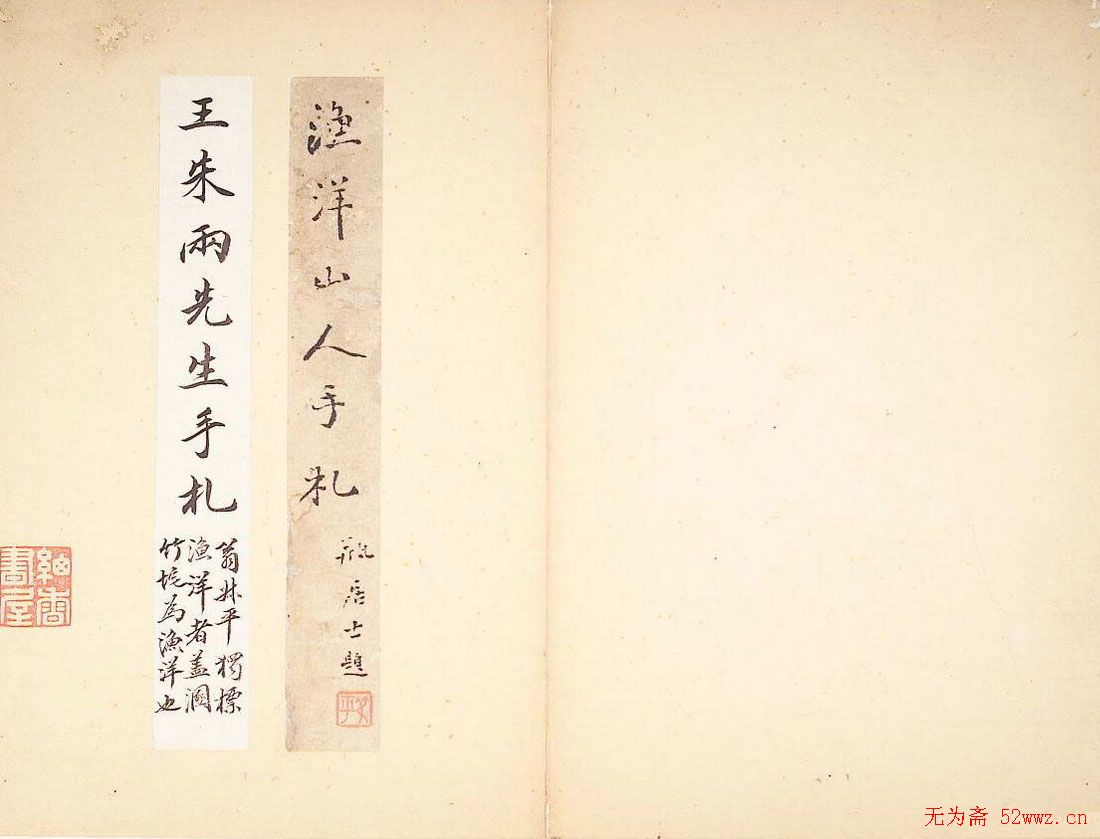 漁洋山人手札
瓶居士題
叔平
王朱兩先生手札
翁叔平獨標
漁洋者蓋溷
竹垞為漁洋也
書屋
无为斋 52wwz.cn